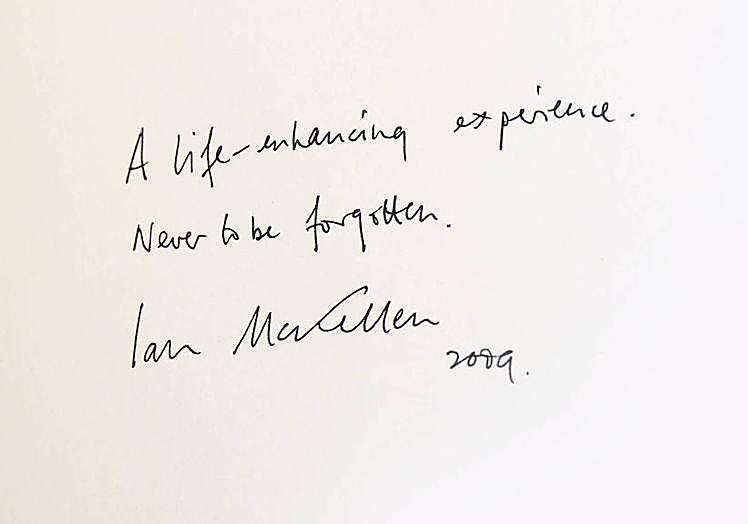 A life-enhancing experience.
Never to be forgotten.
Ian McKellen
2009.